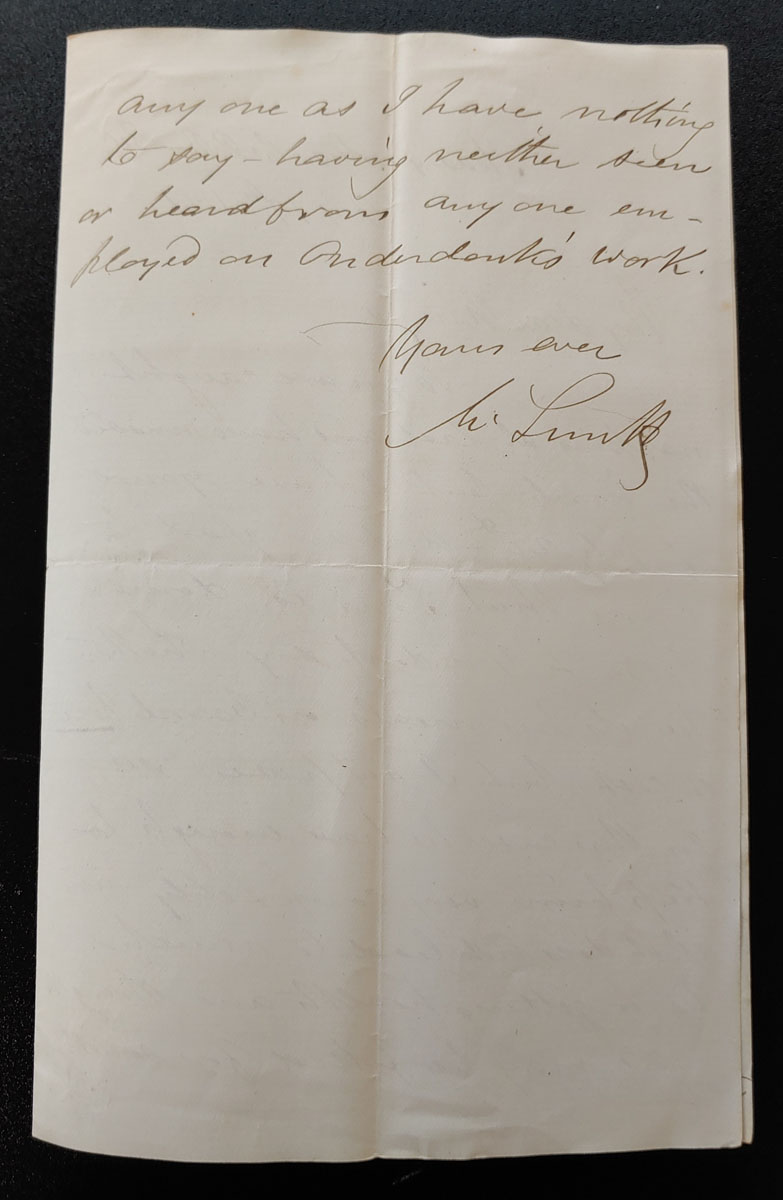 any one as I have nothing
to say - having neither seen
or heard from any one em-
ployed on Onderdonk's work.
Yours ever